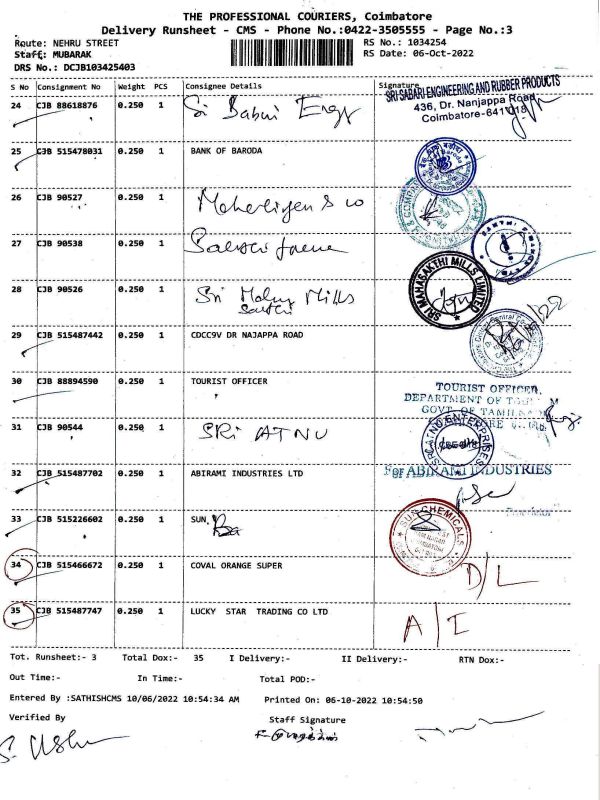 THE PROFESSIONAL COURIERS, Coimbatore
Delivery Runsheet - CMS - Phone No.:0422-3505555 - Page No.:3
Route: NEHRU STREET
RS No.: 1034254
Staff: MUBARAK
RS Date: 06-Oct-2022
DRS No.: DCJB103425403
S No Consignment No Weight PCS Consignee Details Signature
24 CJB 88618876 0.250 1 Sri Sabari Engg
SRI SABARI ENGINEERING AND RUBBER PRODUCTS
436, Dr. Nanjappa Road
Coimbatore-641 018
25 CJB 515478031 0.250 1 BANK OF BARODA
26 CJB 90527 0.250 1
27 CJB 90538 0.250 1
28 CJB 90526 0.250 1 Sri Maha Mills
Sakthi
SRI MAHASAKTHI MILLS LIMITED
29 CJB 515487442 0.250 1 CDCC9V DR NAJAPPA ROAD
30 CJB 88894590 0.250 1 TOURIST OFFICER
TOURIST OFFICER,
DEPARTMENT OF
GOVT. OF TAMIL
31 CJB 90544 0.250 1 SRI ATNU
SRI ATNU ENTERPRISES
32 CJB 515487702 0.250 1 ABIRAMI INDUSTRIES LTD
For ABIRAMI INDUSTRIES
33 CJB 515226602 0.250 1 SUN.
SUN CHEMICALS
34 CJB 515466672 0.250 1 COVAL ORANGE SUPER D/L
35 CJB 515487747 0.250 1 LUCKY STAR TRADING CO LTD A/I
Tot. Runsheet:- 3 Total Dox:- 35 I Delivery:- II Delivery:- RTN Dox:-
Out Time:- In Time:- Total POD:-
Entered By :SATHISHCMS 10/06/2022 10:54:34 AM Printed On: 06-10-2022 10:54:50
Verified By Staff Signature